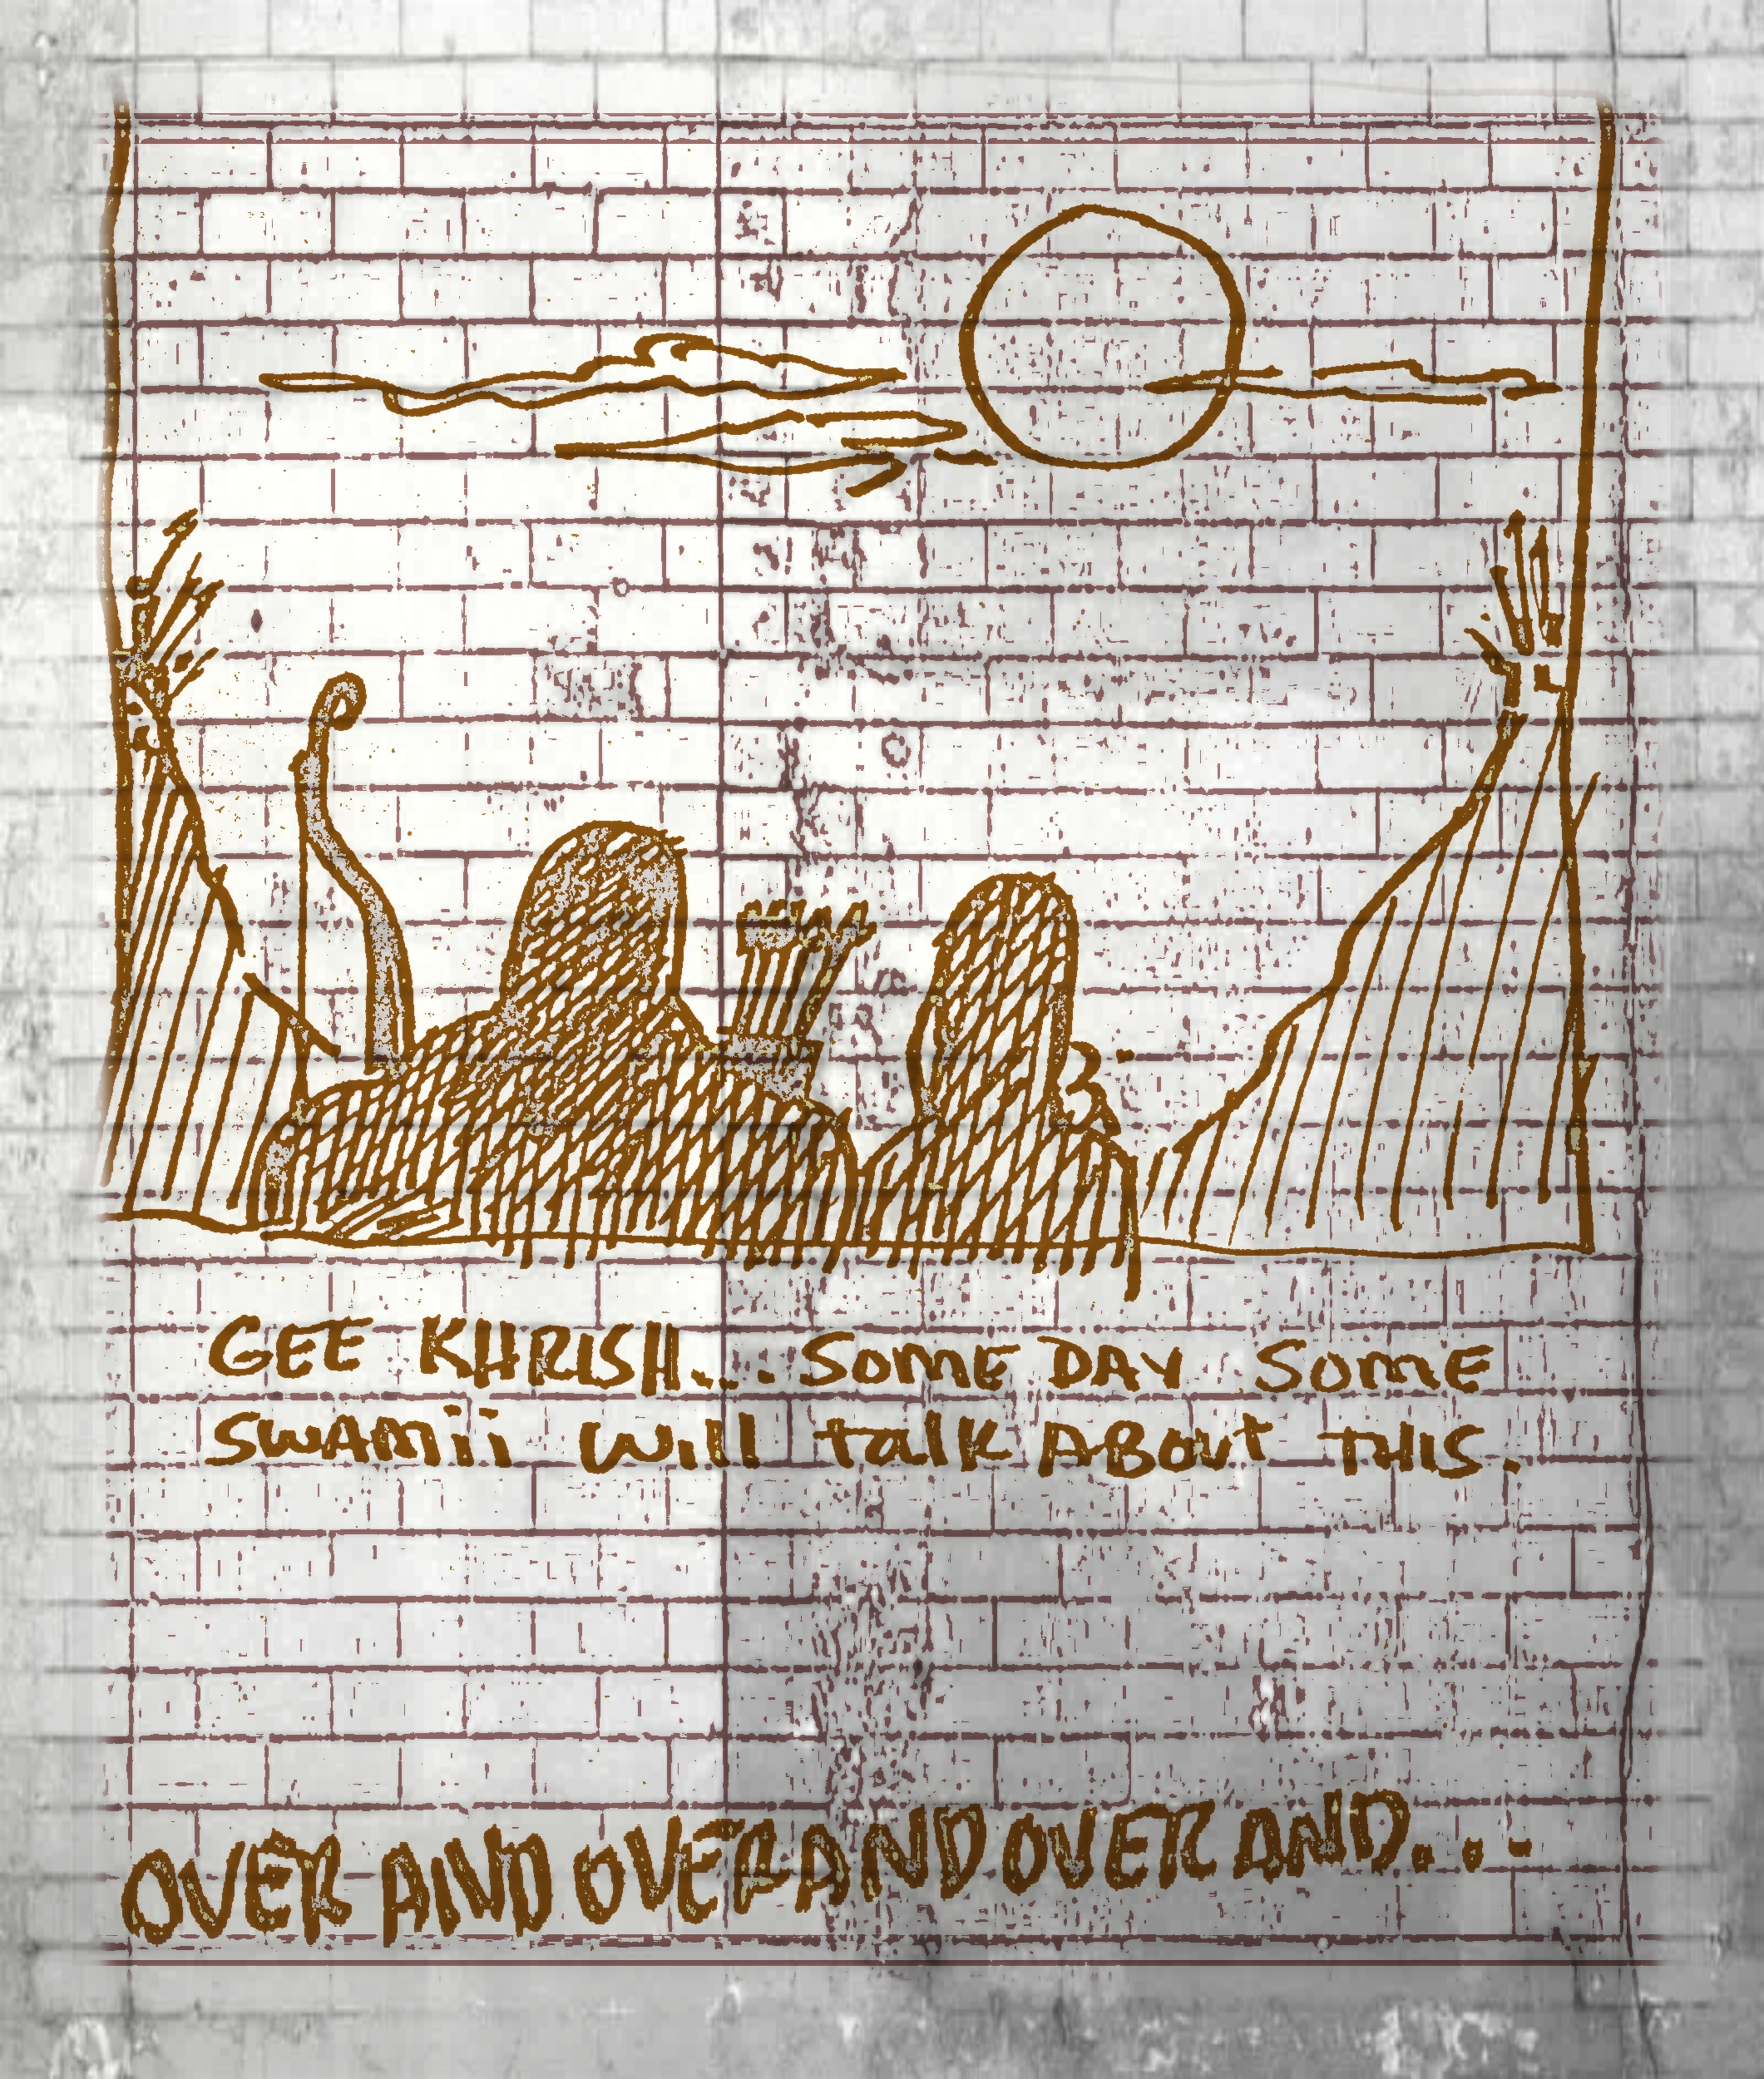 GEE KHRISH... SOME DAY SOME
SWAMii Will talk ABOUt THIS.
OVER AND OVER AND OVER AND...